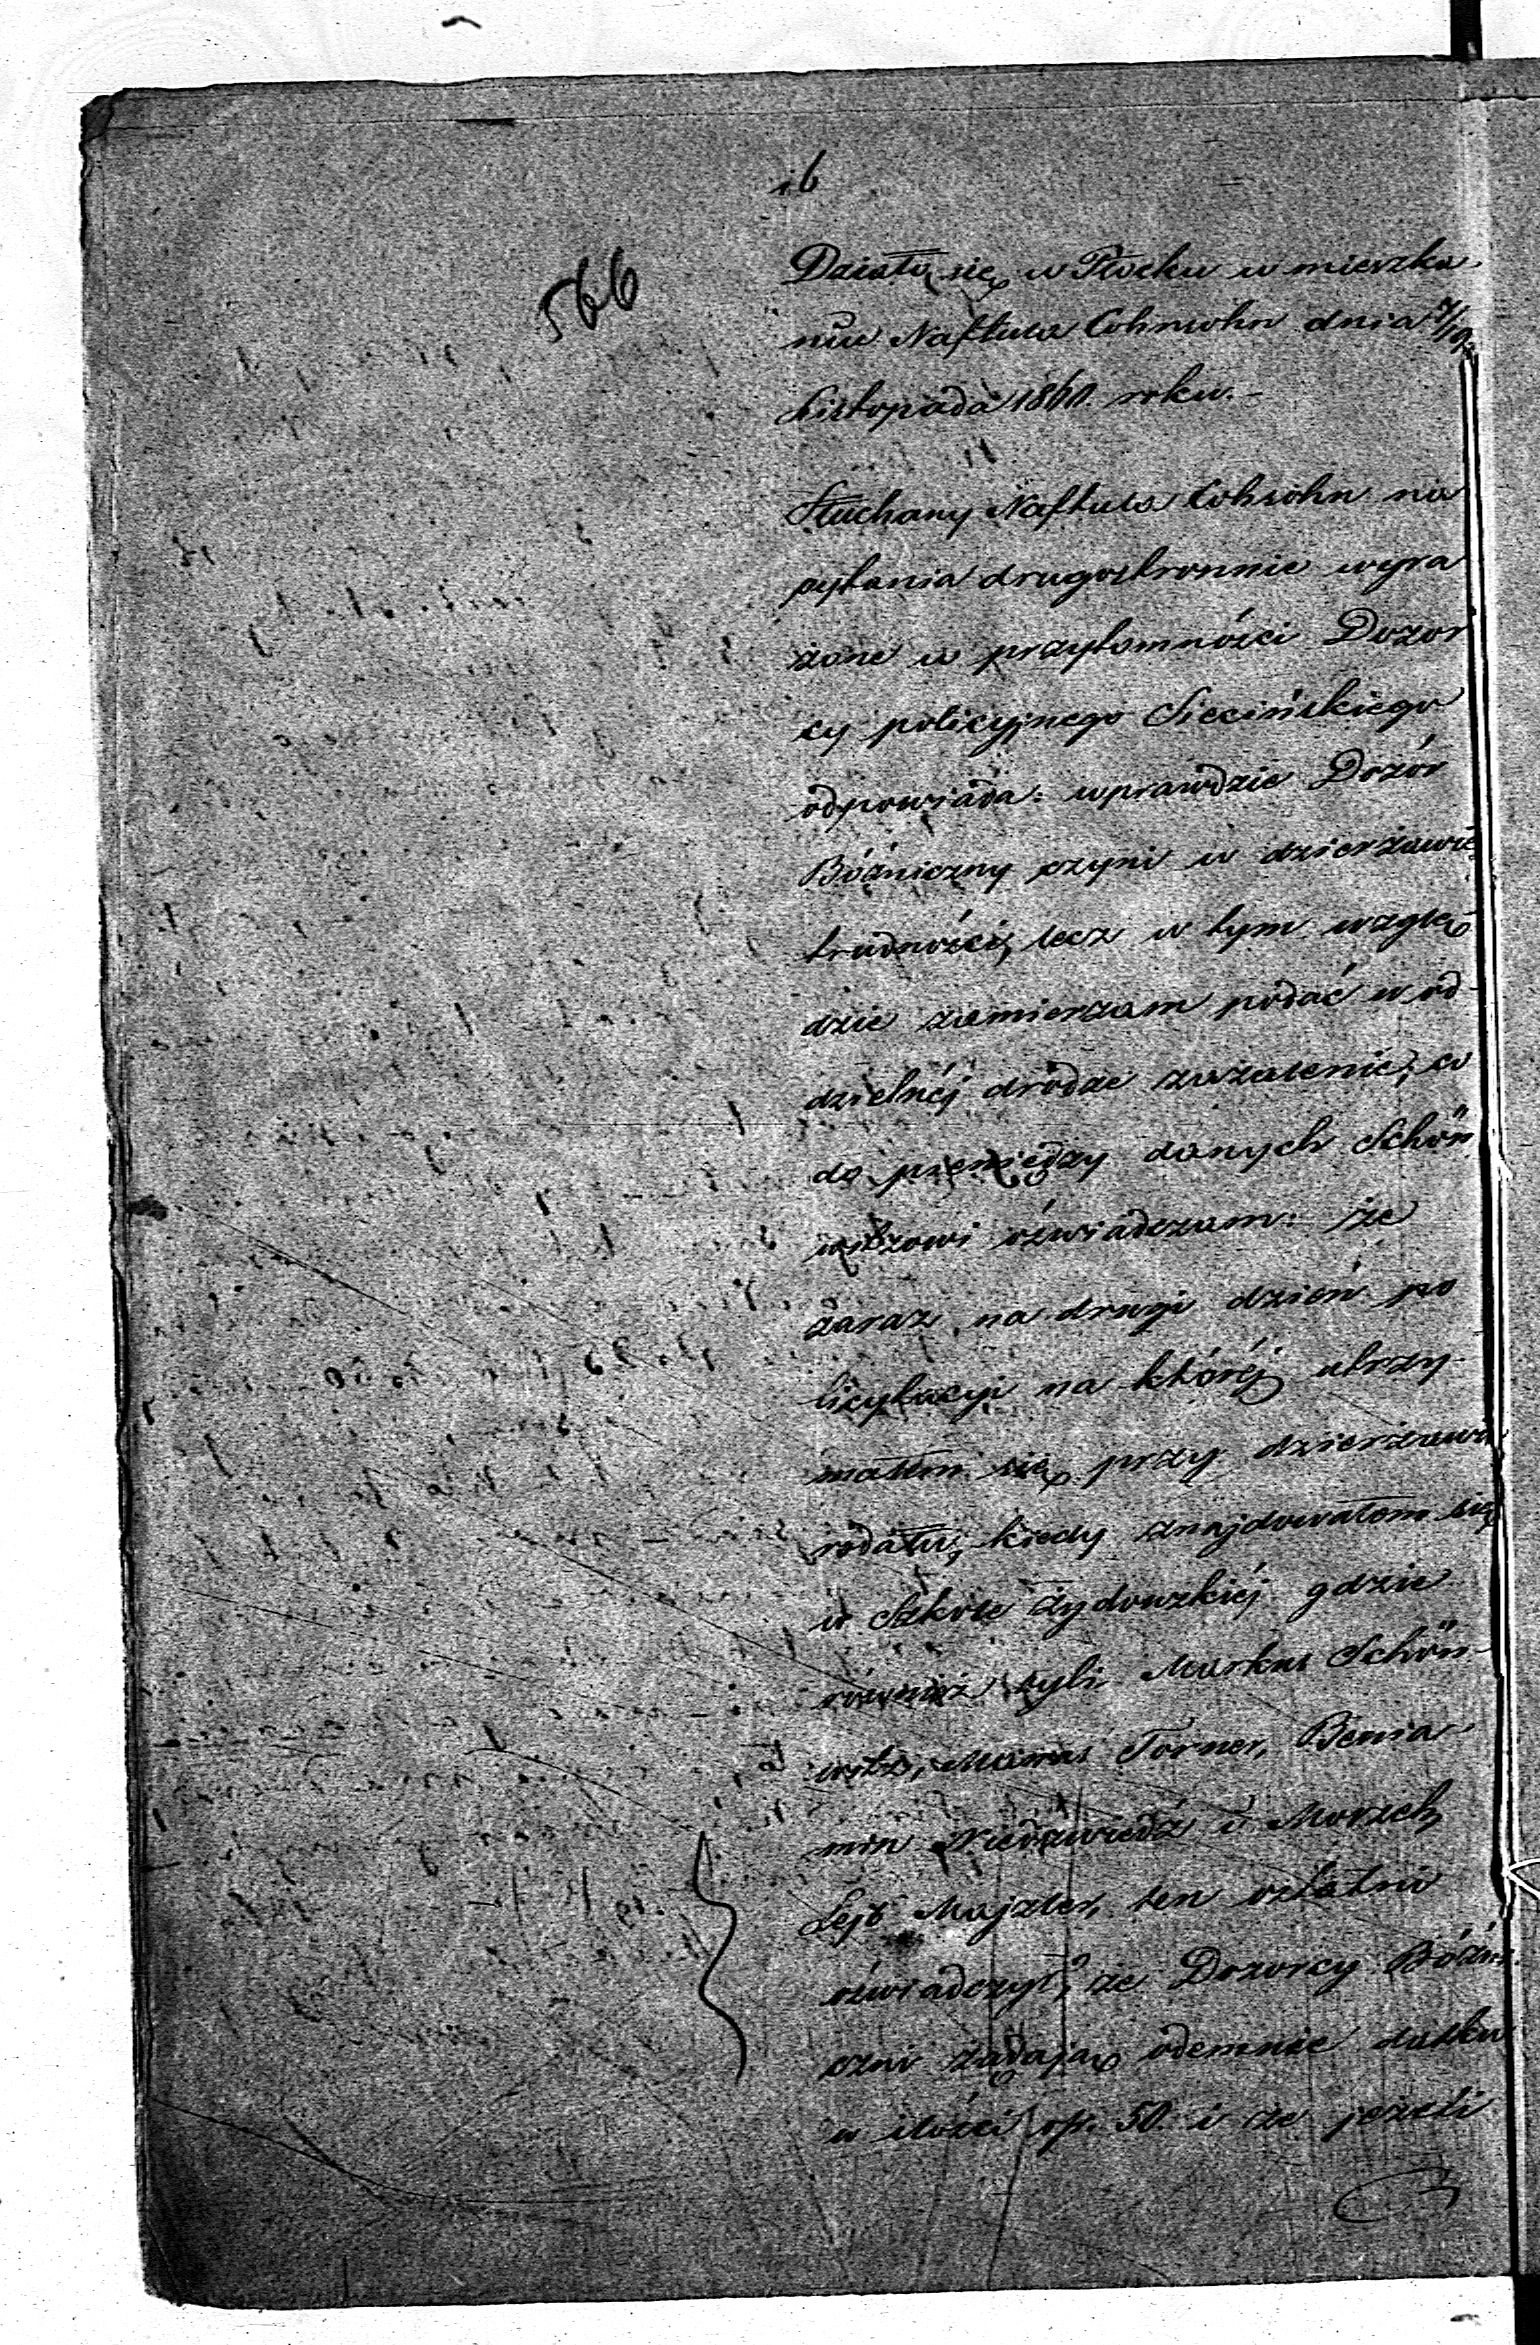 16
566
Działo się w Płocku w mieszka
niu Naftula Cohnsohn dnia 7/19
Listopada 1860. roku.-
Słuchany Naftula Cohsohn na
pytania drugostronnie wyra
żone w przytomności Dozor
cy policyjnego Siecińskiego
odpowiada: wprawdzie Dozór
Bóżniczny czyni w dzierżawie
trudności, lecz w tym wzglę-
dzie zamierzam podać w od-
dzielnéj drodze zażalenie; co
do pieniędzy danych Schön
witzowi oświadczam: że
zaraz na drugi dzień po
licytacyi na któréj utrzy-
małem się przy dzierżawie
rodału, kiedy znajdowałem się
w Szkole żydowskiéj gdzie
również byli Markus Schön-
witz, Torner, Benia-
min Niedzwiedź i Morzch
Lejb Majzler, ten ostatni
oświadczył, że Dozorcy Bóżni
czni żądają odemnie datku
w ilości rs. 50 i że jeżeli